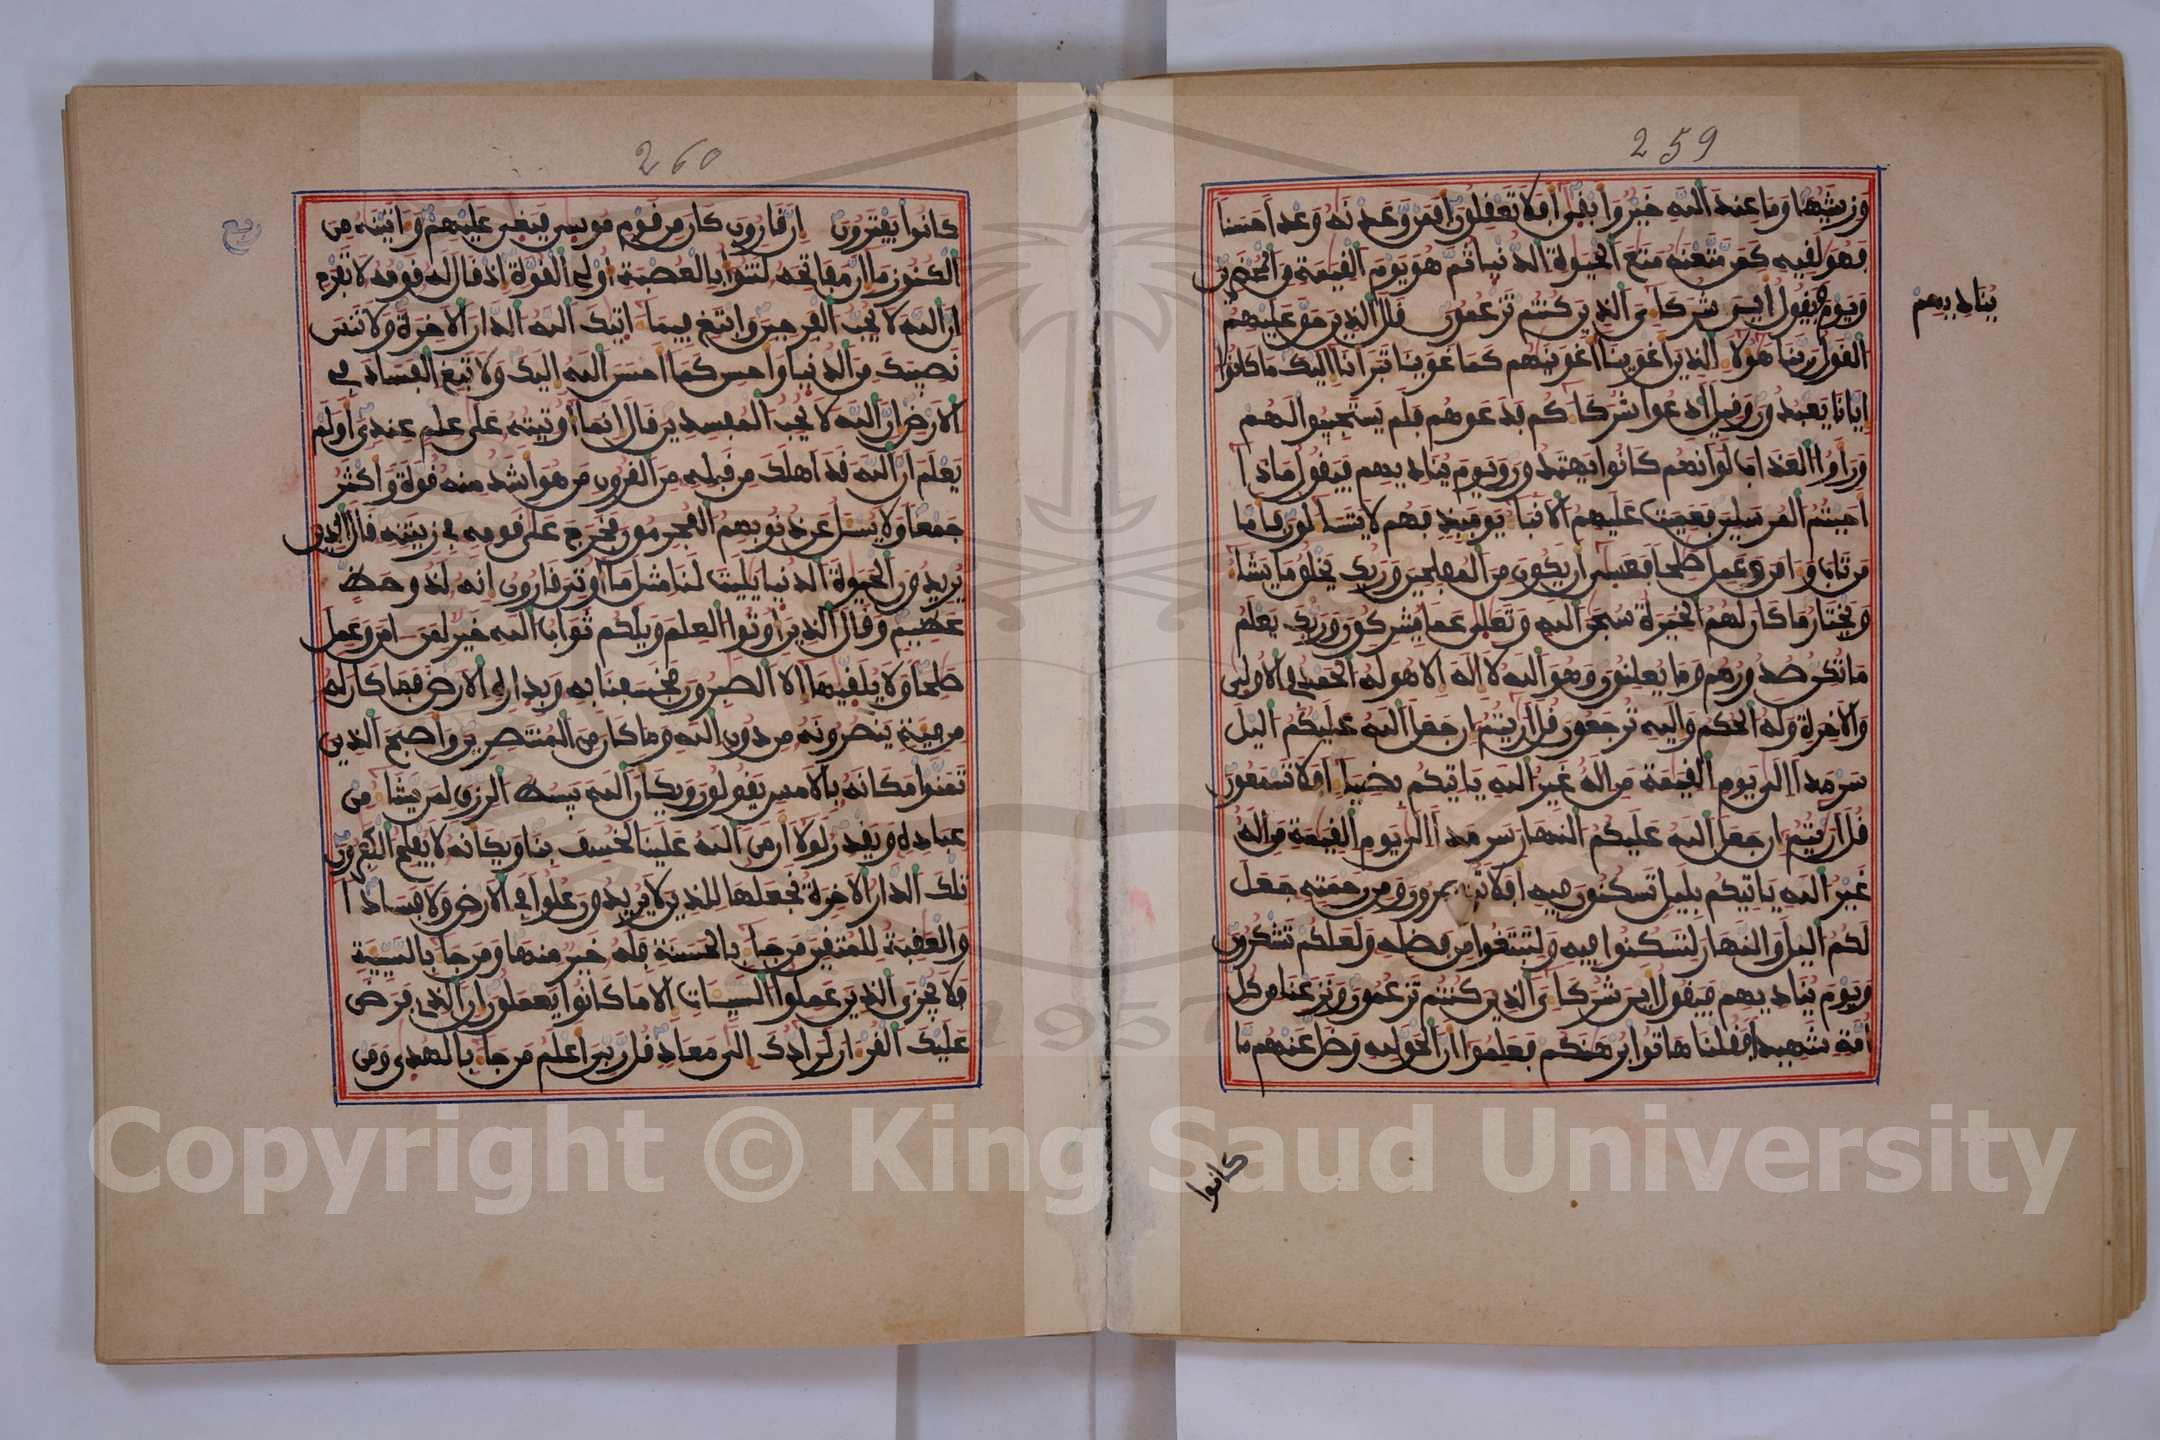 259
وزينتها وما عند الله خير وابقى افلا تعقلون افمن وعدنه وعدا حسنا
فهو لقيه كمن متعنه متع الحيوة الدنيا ثم هو يوم القيمة من المحضرين
ويوم يقول اين شركاءى الذين كنتم تزعمون قال الذين حق عليهم
يناديهم
القول ربنا هؤلاء الذين اغوينا اغوينهم كما غوينا تبرانا اليك ما كانوا
ايانا يعبدون وقيل ادعوا شركاءكم فدعوهم فلم يستجيبوا لهم
وراوا العذاب لو انهم كانوا يهتدون ويوم يناديهم فيقول ماذا
اجبتم المرسلين فعميت عليهم الانباء يومئذ فهم لا يتساءلون فاما
من تاب وامن وعمل صلحا فعسى ان يكون من المفلحين وربك يخلق ما يشاء
ويختار ما كان لهم الخيرة سبحن الله وتعلى عما يشركون وربك يعلم
ما تكن صدورهم وما يعلنون وهو الله لا اله الا هو له الحمد في الاولى
والاخرة وله الحكم واليه ترجعون قل اريتم ان جعل الله عليكم اليل
سرمدا الى يوم القيمة من اله غير الله ياتيكم بضياء افلا تسمعون
قل اريتم ان جعل الله عليكم النهار سرمدا الى يوم القيمة من اله
غير الله ياتيكم بليل تسكنون فيه افلا تبصرون ومن رحمته جعل
لكم اليل والنهار لتسكنوا فيه ولتبتغوا من فضله ولعلكم تشكرون
ويوم يناديهم فيقول اين شركاءى الذين كنتم تزعمون ونزعنا من كل
امة شهيدا فقلنا هاتوا برهنكم فعلموا ان الحق لله وضل عنهم ما
كانوا
260
كانوا يفترون ان قارون كان من قوم موسى فبغى عليهم واتينه من
الكنوز ما ان مفاتحه لتنوا بالعصبة اولى القوة اذ قال له قومه لا تفرح
ان الله لا يحب الفرحين وابتغ فيما اتيك الله الدار الاخرة ولا تنس
نصيبك من الدنيا واحسن كما احسن الله اليك ولا تبغ الفساد في
الارض ان الله لا يحب المفسدين قال انما اوتيته على علم عندى اولم
يعلم ان الله قد اهلك من قبله من القرون من هو اشد منه قوة واكثر
جمعا ولا يسل عن ذنوبهم المجرمون فخرج على قومه في زينته قال الذين
يريدون الحيوة الدنيا يليت لنا مثل ما اوتي قارون انه لذو حظ
عظيم وقال الذين اوتوا العلم ويلكم ثواب الله خير لمن امن وعمل
صلحا ولا يلقيها الا الصبرون فخسفنا به وبداره الارض فما كان له
من فئة ينصرونه من دون الله وما كان من المنتصرين واصبح الذين
تمنوا مكانه بالامس يقولون ويكان الله يبسط الرزق لمن يشاء من
عباده ويقدر لولا ان من الله علينا لخسف بنا ويكانه لا يفلح الكفرون
تلك الدار الاخرة نجعلها للذين لا يريدون علوا في الارض ولا فسادا
والعقبة للمتقين من جاء بالحسنة فله خير منها ومن جاء بالسيئة
فلا يجزى الذين عملوا السيئات الا ما كانوا يعملون ان الذى فرض
عليك القران لرادك الى معاد قل ربى اعلم من جاء بالهدى ومن
1957
Copyright © King Saud University